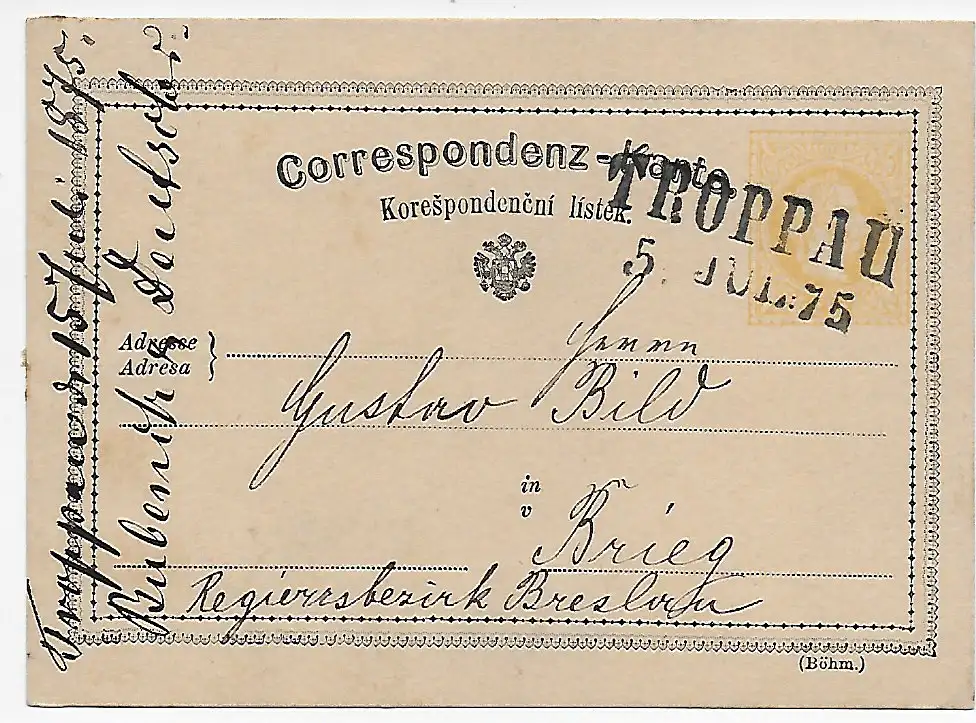 Correspondenz-Karte.
Korešpondenční lístek.
TROPPAU
5 JUL. 75
Adresse
Adresa
Herrn
Gustav Bild
in
v
Brieg
Regierrsbezirk Breslau
(Böhm.)
Troppau d 5 Juli 1875.